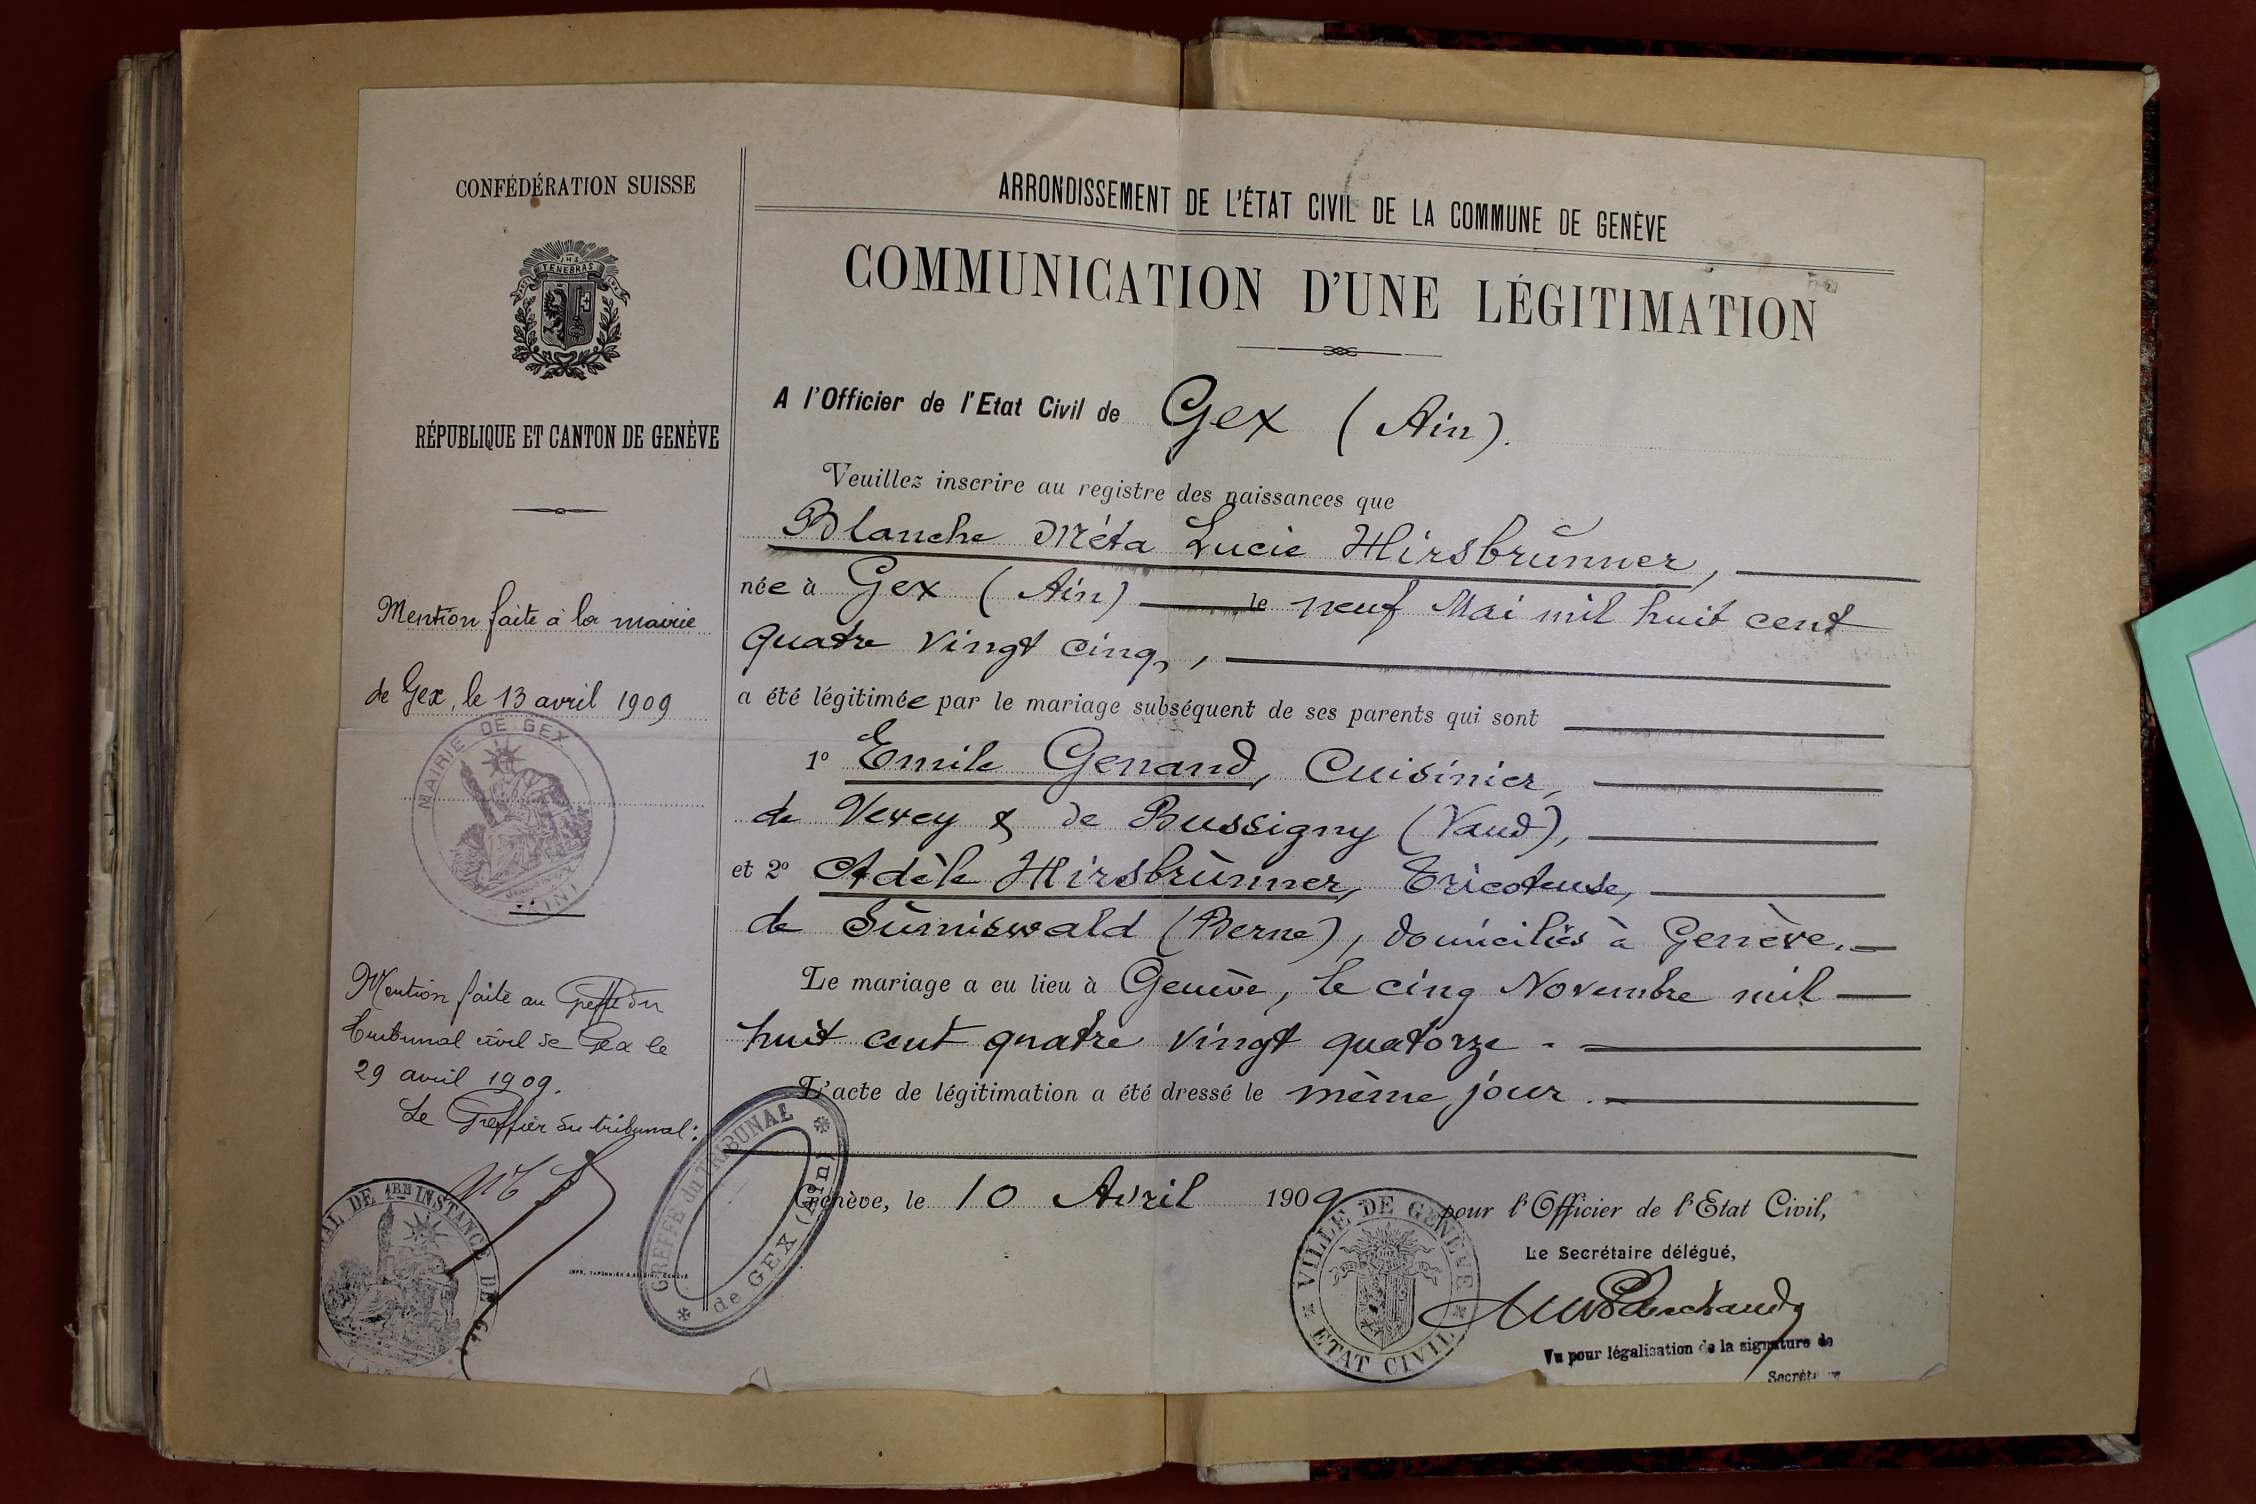 CONFÉDÉRATION SUISSE
TENEBRAS
RÉPUBLIQUE ET CANTON DE GENÈVE
Mention faite à la mairie
de Gex, le 13 avril 1909
MAIRIE DE GEX
(AIN)
Mention faite au Greffe du
tribunal civil de Gex le
29 avril 1909.
Le Greffier du tribunal:
AL DE 1RE INSTANCE DE GE
GREFFE du TRIBUNAL
de GEX (Ain)
ARRONDISSEMENT DE L'ÉTAT CIVIL DE LA COMMUNE DE GENÈVE
COMMUNICATION D'UNE LÉGITIMATION
A l'Officier de l'Etat Civil de Gex (Ain).
Veuillez inscrire au registre des naissances que
Blanche Méta Lucie Hirsbrünner,
née à Gex (Ain) le neuf Mai mil huit cent
quatre vingt cinq,
a été légitimée par le mariage subséquent de ses parents qui sont
1º Emile Genand, Cuisinier,
de Vevey & de Bussigny (Vaud),
et 2º Adèle Hirsbrünner, Tricoteuse,
de Sumiswald (Berne), domiciliés à Genève.
Le mariage a eu lieu à Genève, le cinq Novembre mil
huit cent quatre vingt quatorze.
L'acte de légitimation a été dressé le même jour.
Genève, le 10 Avril 1909
pour l'Officier de l'Etat Civil,
Le Secrétaire délégué,
VILLE DE GENÈVE
ETAT CIVIL
Vu pour légalisation de la signature de